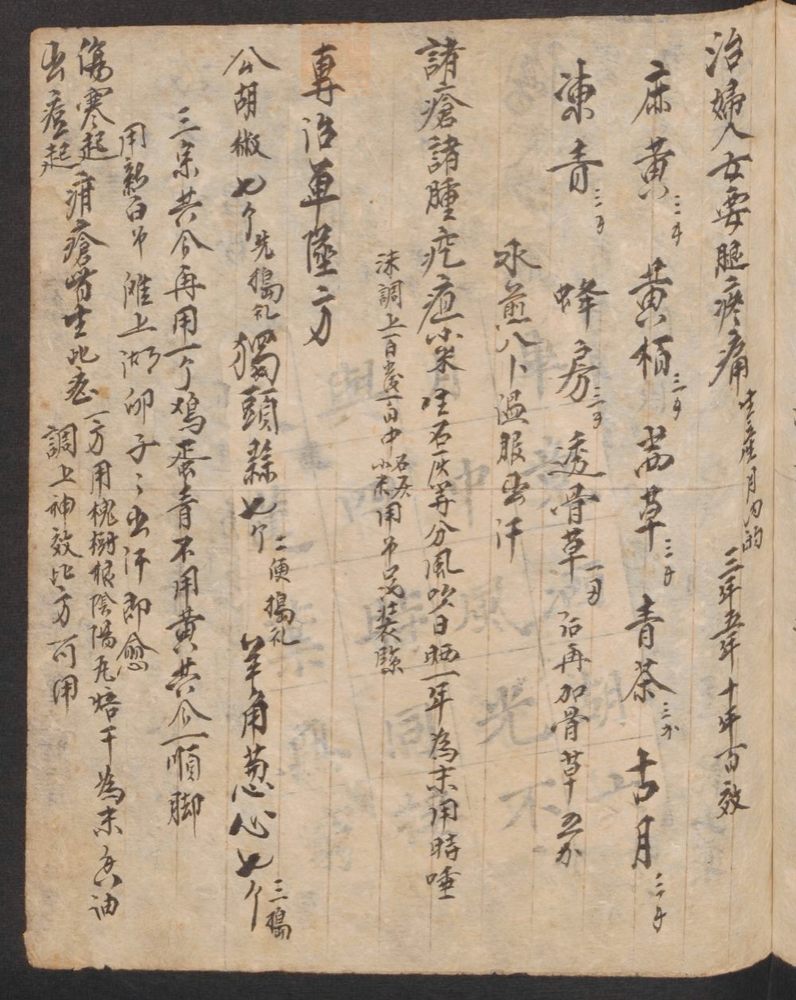 治婦人女要腿疼痛 生產月內的 三年五年十年百效
麻黃三子 黃栢三子 甘草三子 青茶三分 古月三子
凍青三子 蜂房三子 透骨草一刃 后再加骨草五分
水煎八卜溫服出汗
諸瘡諸腫疙疸小米 生石灰等分風吹日晒一年為末用時唾
沫調上百發百中 石灰小米用布袋裝
專治單墜方
公胡椒七个先搗扎 獨頭蒜七个二便搗扎 羊角葱心七个三搗
三宗共合再用一个鳮蛋青不用黃共合一順脚
用新白布 攤上湖卵子子出汗即愈
傷寒起 疳瘡皆生此症 一方用槐樹根陰陽瓦焙干為末香油
出疹起 調上神效此方可用